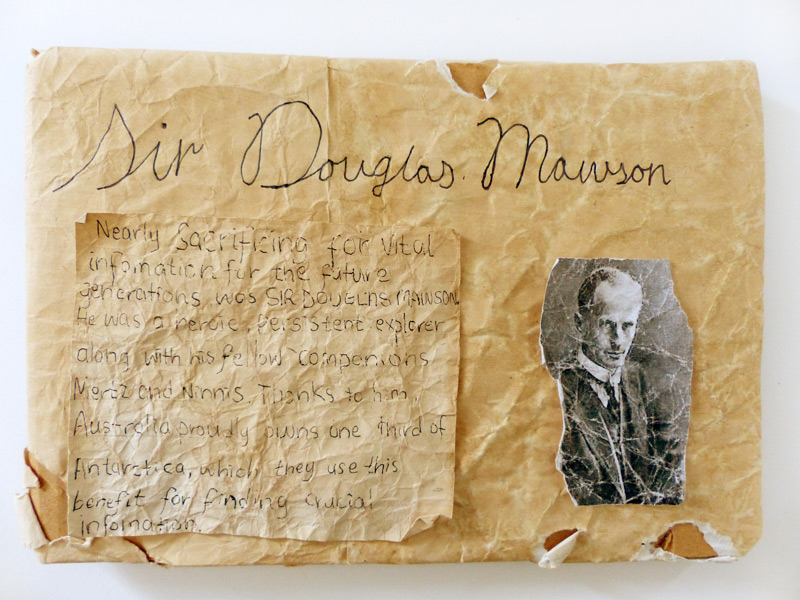 Sir Douglas. Mawson
Nearly Sacrificing for vital
infomation for the future
generations was SIR DOUGLAS MAWSON.
He was a heroic, persistent explorer
along with his fellow companions
Mertz and Ninnis. Thanks to him,
Australia proudly owns one third of
Antarstica, which they use this
benefit for finding crucial
infomation.